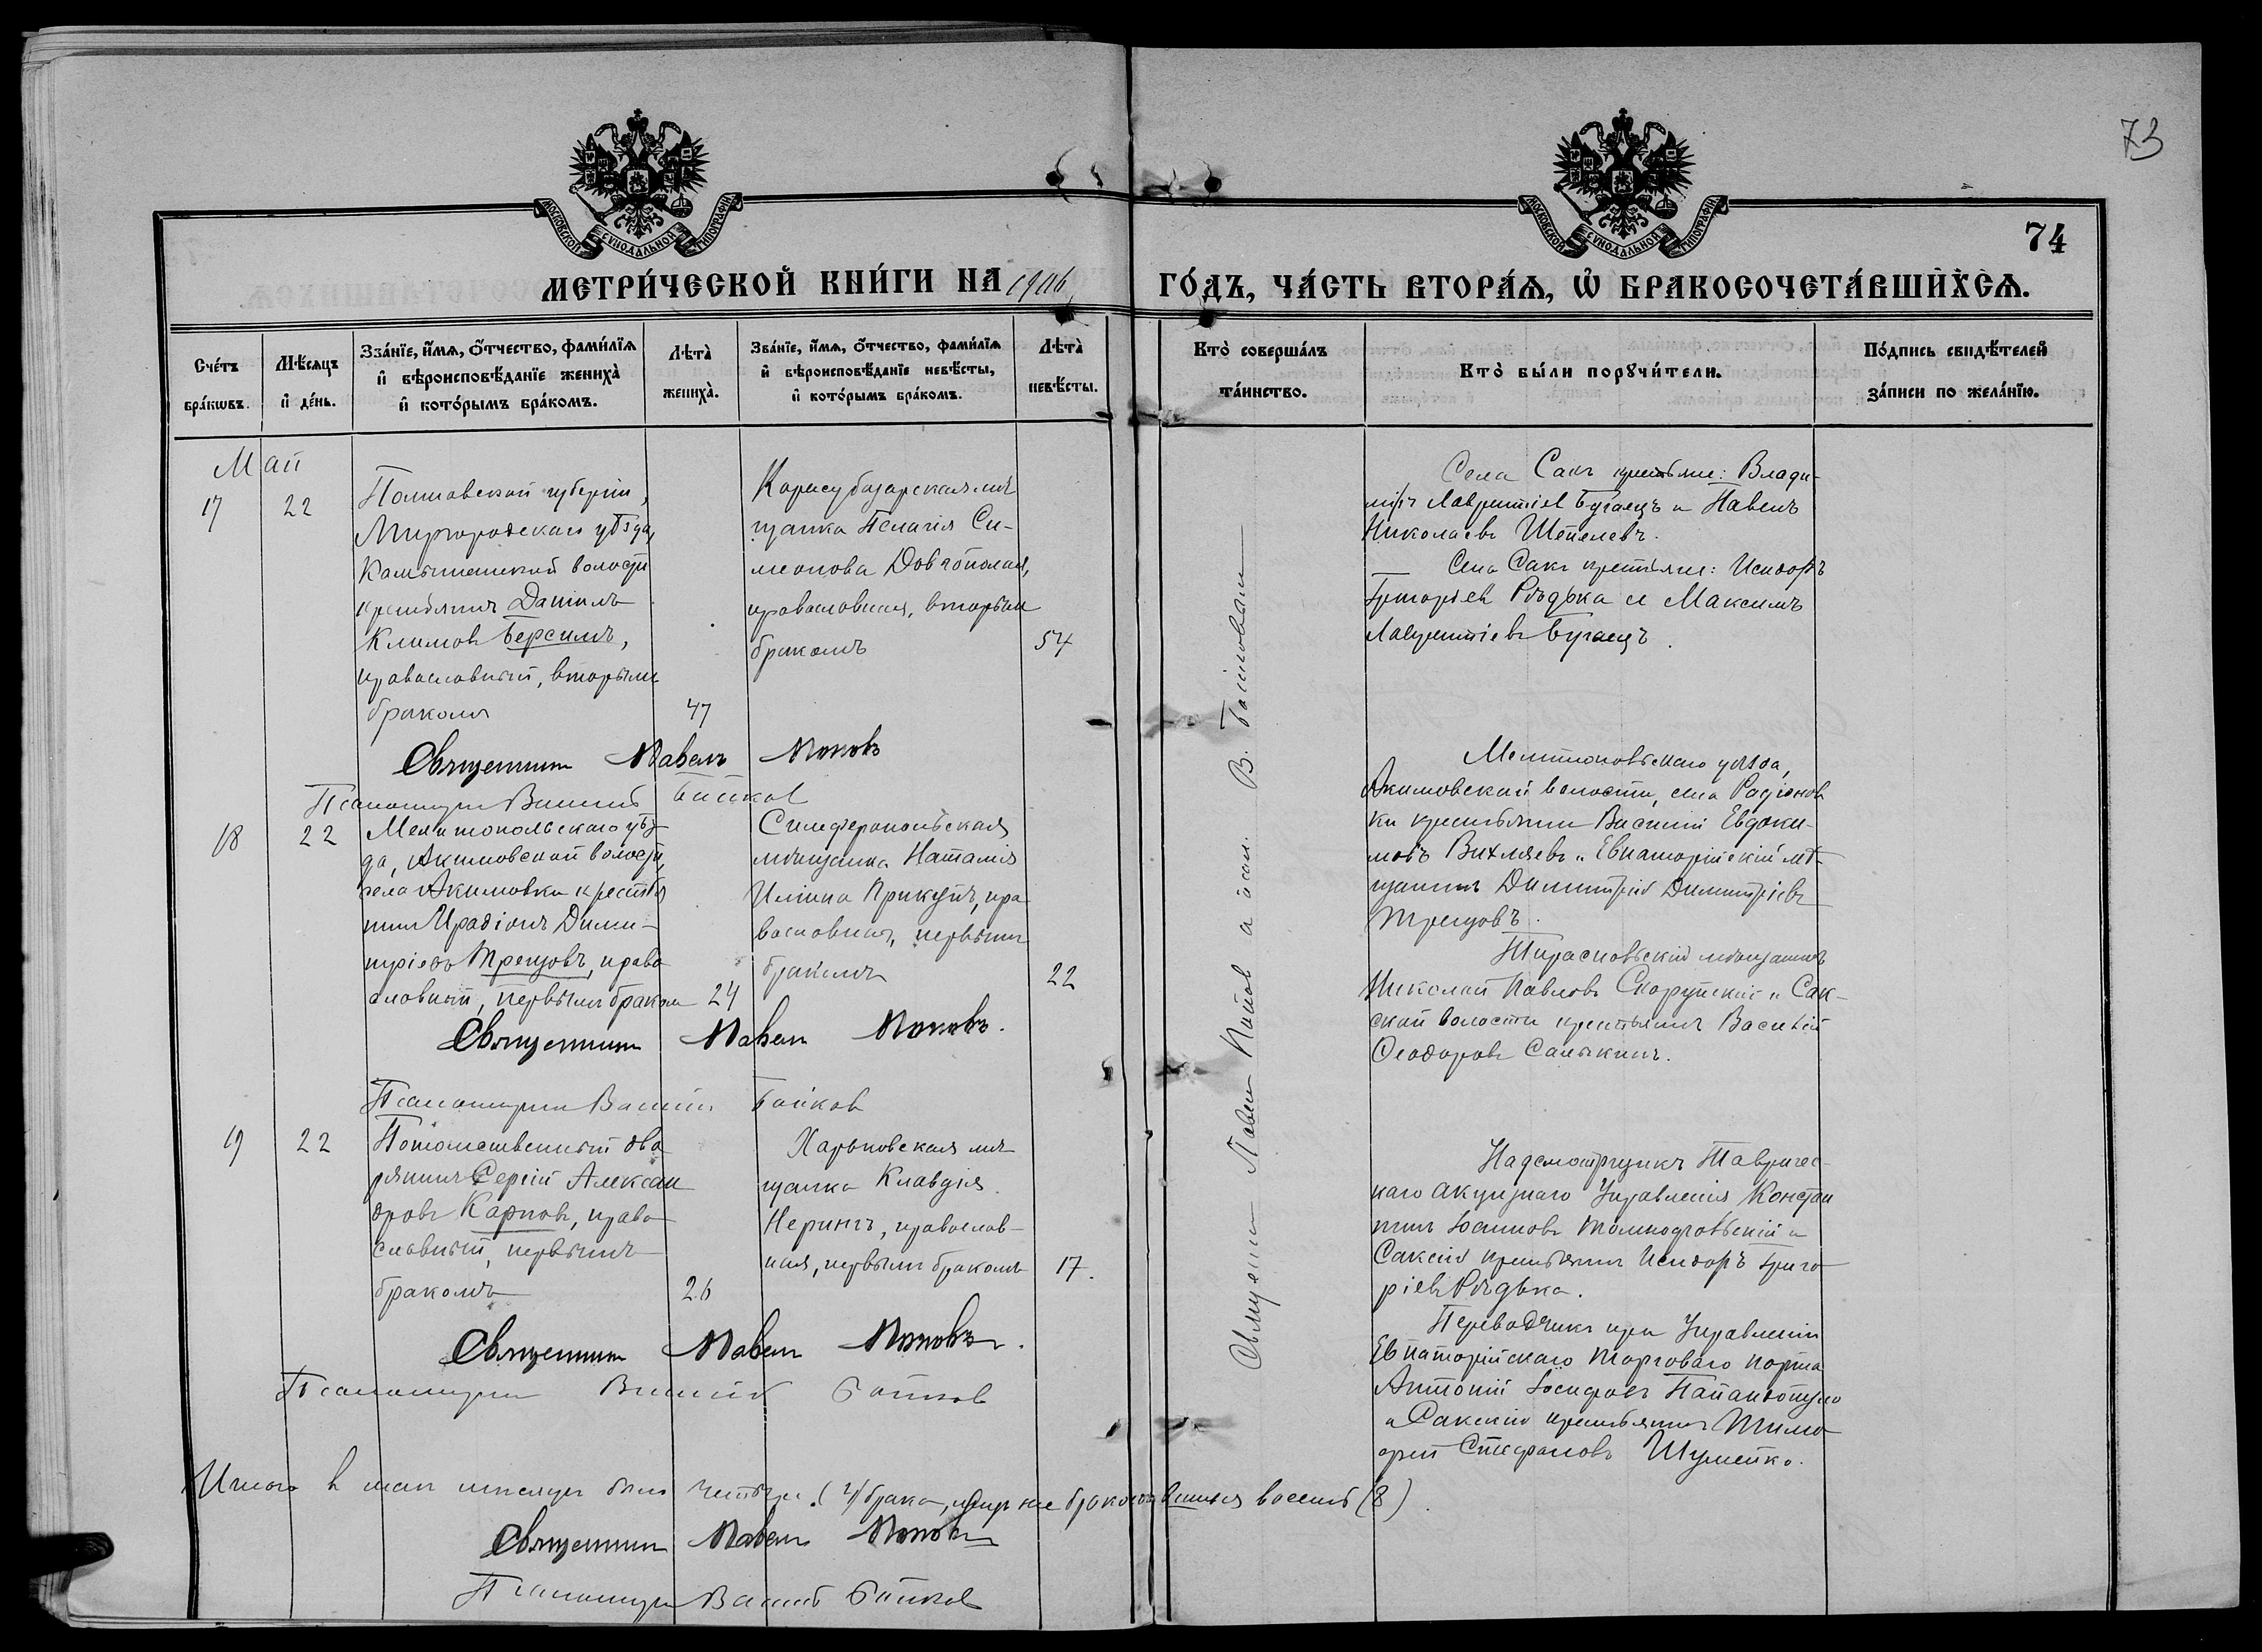 73
74
МОСКОВСКОЙ СѴНОДАЛЬНОЙ ТИПОГРАФІИ
МОСКОВСКОЙ СѴНОДАЛЬНОЙ ТИПОГРАФІИ
МЕТРИ́ЧЕСКОЙ КНИ́ГИ НА 1906
ГО́ДЪ, ЧА́СТЬ ВТОРА́Ѧ, Ѽ БРАКОСОЧЕТА́ВШИХСѦ.
Сче́тъ бра́кѡвъ.
Мѣ́сѧцъ и҆ де́нь.
Зва́нїе, и҆́мѧ, ѻ҆́тчество, фами́лїѧ
и҆ вѣроисповѣ́данїе жениха̀
и҆ кото́рымъ бра́комъ.
Лѣта̀ жениха̀.
Зва́нїе, и҆́мѧ, ѻ҆́тчество, фами́лїѧ
и҆ вѣроисповѣ́данїе невѣ́сты,
и҆ кото́рымъ бра́комъ.
Лѣта̀ невѣ́сты.
Кто̀ соверша́лъ та́инство.
Кто̀ бы́ли порꙋчи́тели.
По́дпись свидѣ́телей за́писи по жела́нїю.
Май
17
22
Полтавской губерніи,
Миргородскаго уѣзда,
Камышанской волости
крестьянинъ Даніилъ
Климовъ Берсимъ,
православный, вторымъ
бракомъ
47
Карасубазарская мѣ-
щанка Пелагія Си-
меонова Довгополая,
православная, вторымъ
бракомъ
54
Села Сакъ крестьяне: Влади-
міръ Лаврентіевъ Бугаецъ и Павелъ
Николаевъ Шепелевъ.
Села Сакъ крестьяне: Исидоръ
Григоріевъ Рѣдька и Максимъ
Лаврентіевъ Бугаецъ.
Священникъ Павелъ Поповъ
Псаломщикъ Василій Байковъ
18
22
Мелитопольскаго уѣз-
да, Акимовской волости,
села Акимовки крестья
нинъ Иродіонъ Дими-
тріевъ Трегубовъ, право
славный, первымъ бракомъ
24
Симферопольская
мѣщанка Наталія
Ильина Прикутъ, пра
вославная, первымъ
бракомъ
22
Мелитопольскаго уѣзда,
Акимовской волости, села Радіонов
ки крестьянинъ Василій Евдоки-
мовъ Вихляевъ и Евпаторійскій мѣ-
щанинъ Димитрій Димитріевъ
Тираспольскій мѣщанинъ
Николай Павловъ Скорупскій и Сак-
ской волости крестьянинъ Василій
Ѳеодоровъ Салыкинъ.
Священникъ Павелъ Поповъ.
Псаломщикъ Василій Байковъ
19
22
Потомственный дво
рянинъ Сергій Алексан
дровъ Карповъ, право
славный, первымъ
бракомъ
26
Харьковская мѣ
щанка Клавдія
Нерингъ, православ-
ная, первымъ бракомъ
17.
Надсмотрщикъ Тавричес-
каго акцизнаго Управленія Констан
тинъ Іоанновъ и
Сакскій крестьянинъ Исидоръ Григо
ріевъ Рѣдька.
Переводчикъ при Управленіи
Евпаторійскаго торговаго порта
Антоній Іосифовъ
и Сакскій крестьянинъ Тимо
ѳей Стефановъ Шумейко.
Священникъ Павелъ Поповъ.
Псаломщикъ Василій Байковъ
Священникъ Павелъ Поповъ а псал. В. Байковъ
Итого въ маѣ мѣсяцѣ было четыре (4) брака, восемь (8).
Священникъ Павелъ Поповъ
Псаломщикъ Василій Байковъ